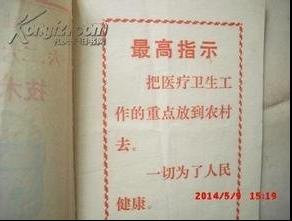 Kongfz.com
技术
最高指示
把医疗卫生工
作的重点放到农村
去。
一切为了人民
健康。
2014/5/9 15:19